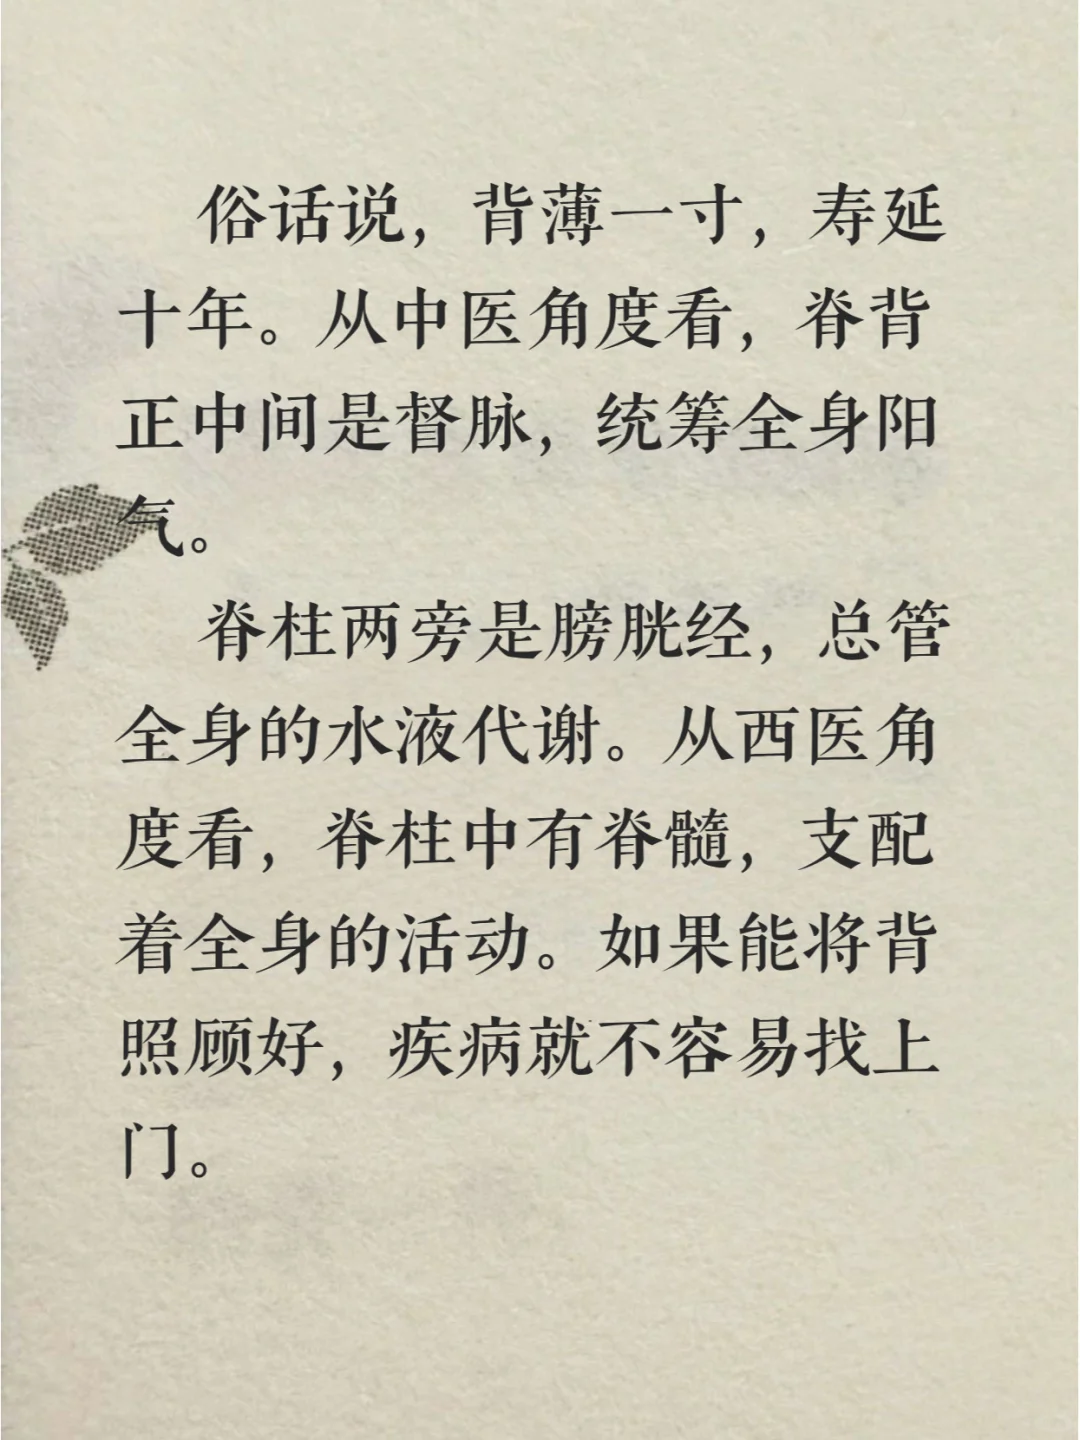 俗话说，背薄一寸，寿延
十年。从中医角度看，脊背
正中间是督脉，统筹全身阳
气。
脊柱两旁是膀胱经，总管
全身的水液代谢。从西医角
度看，脊柱中有脊髓，支配
着全身的活动。如果能将背
照顾好，疾病就不容易找上
门。